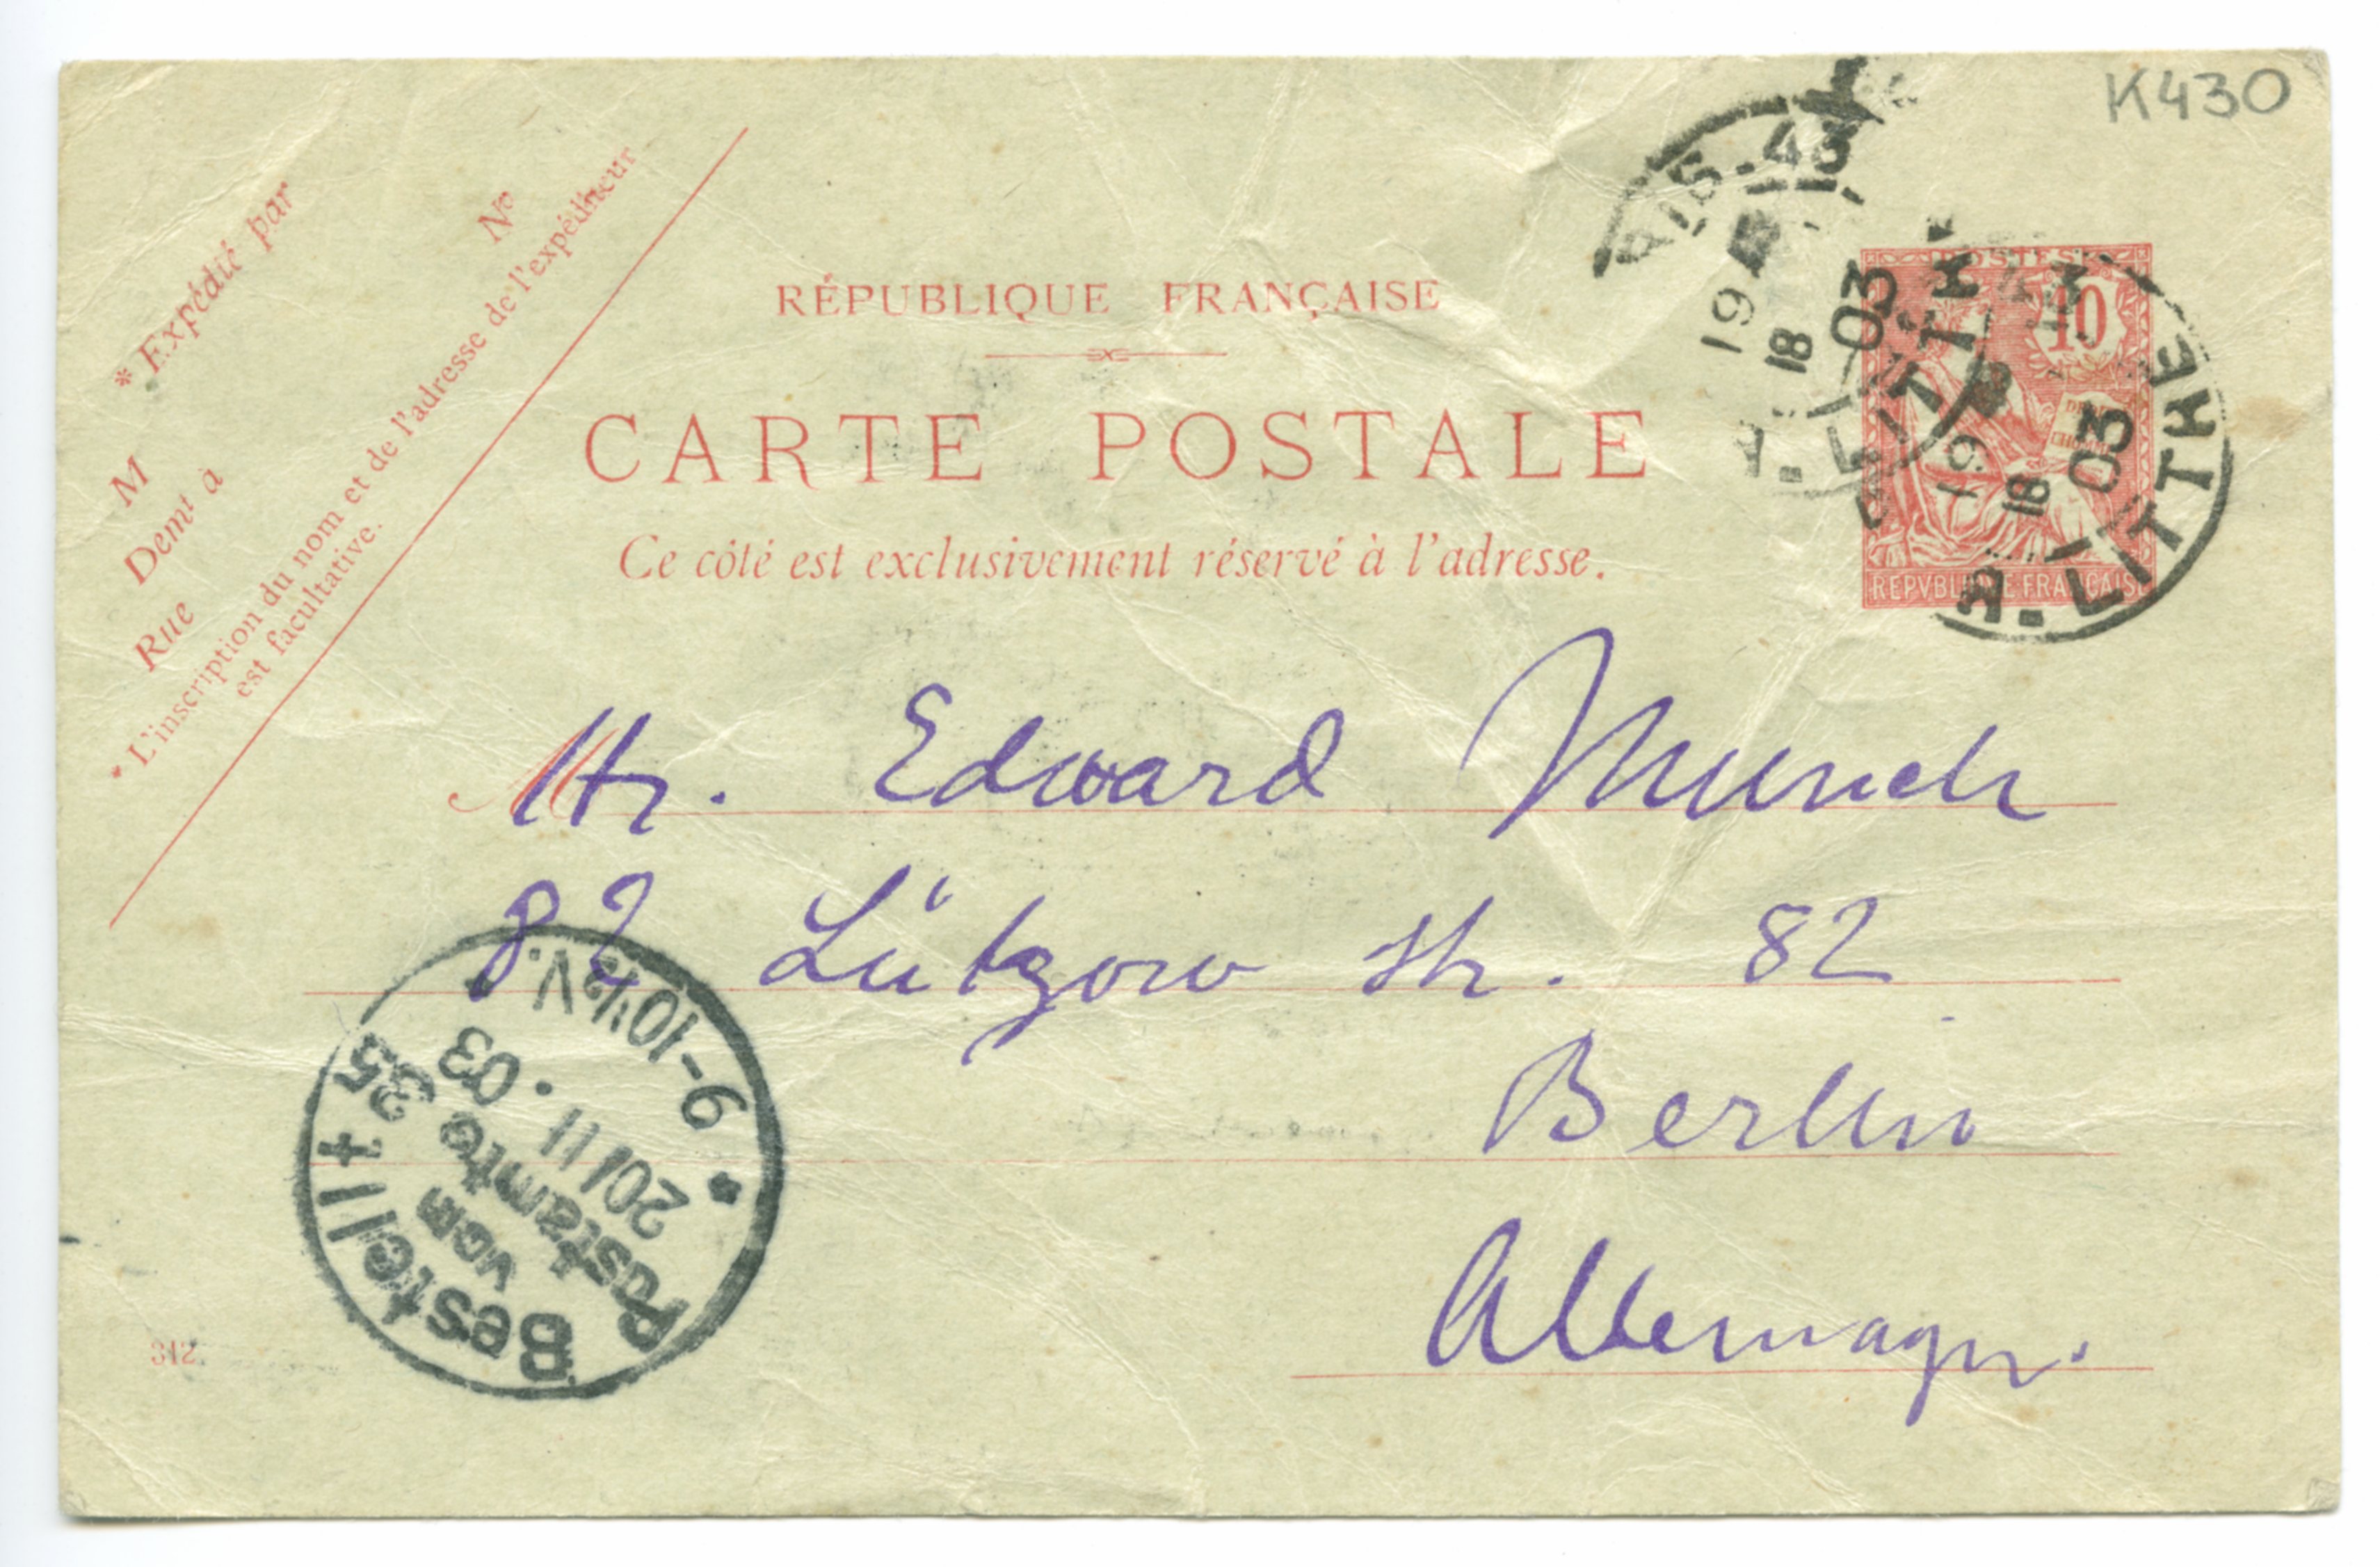 K430
* Expédié par
M
Nº
Demt à
Rue
* L'inscription du nom et de l'adresse de l'expéditeur
est facultative.
RÉPUBLIQUE FRANÇAISE
CARTE POSTALE
Ce côté est exclusivement réservé à l'adresse.
POSTES
10
REPVBLIQUE FRANÇAISE
19
18
03
R. LITTRÉ
19
18
03
R. LITTRÉ
M
Mr. Edward Munch
82 Lützow str. 82
Berlin
Allemagne.
Bestellt
vom
Postamte 35
20/11.03
9-10½V.
312.